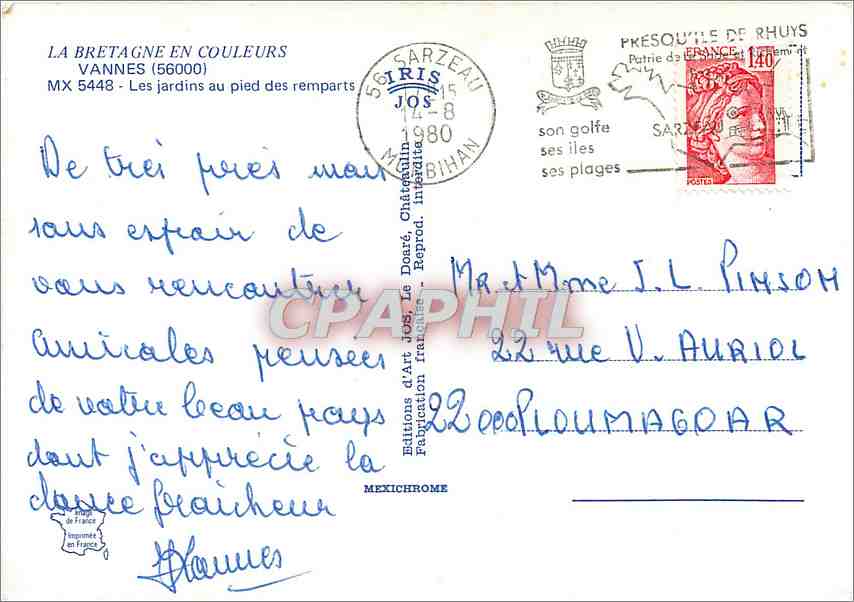 LA BRETAGNE EN COULEURS
VANNES (56000)
MX 5448 - Les jardins au pied des remparts
56 SARZEAU
15
14-8
1980
MORBIHAN
IRIS
JOS
son golfe
ses iles
ses plages
PRESQU'ILE DE RHUYS
Patrie de
SARZEAU
FRANCE
1,40
POSTES
De très près mais
sans espoir de
vous rencontrer
amicales pensées
de votre beau pays
dont j'apprécie la
douce fraîcheur
CPAPHIL
Editions d'Art JOS, Le Doaré, Châteaulin
Fabrication française - Reprod. interdite
Mr et Mme J. L. PINSON
22 rue V. AURIOL
22000 PLOUMAGOAR
MEXICHROME
Image
de France
Imprimée
en France